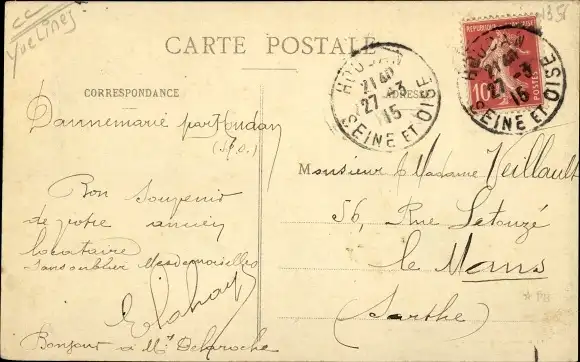 cc
Yvelines
1356
CARTE POSTALE
CORRESPONDANCE
ADRESSE
Dannemarie par Houdan
(S.&O.)
Bon souvenir
de votre ancien
locataire
sans oublier Mesdemoiselles
Bonjour à Mr Delaroche
HOUDAN
21 40
27 -3
15
SEINE ET OISE
10
HOUDAN
21 40
27 -3
15
SEINE ET OISE
Monsieur & Madame Veillault
56, Rue Letouzé
le Mans
(Sarthe)